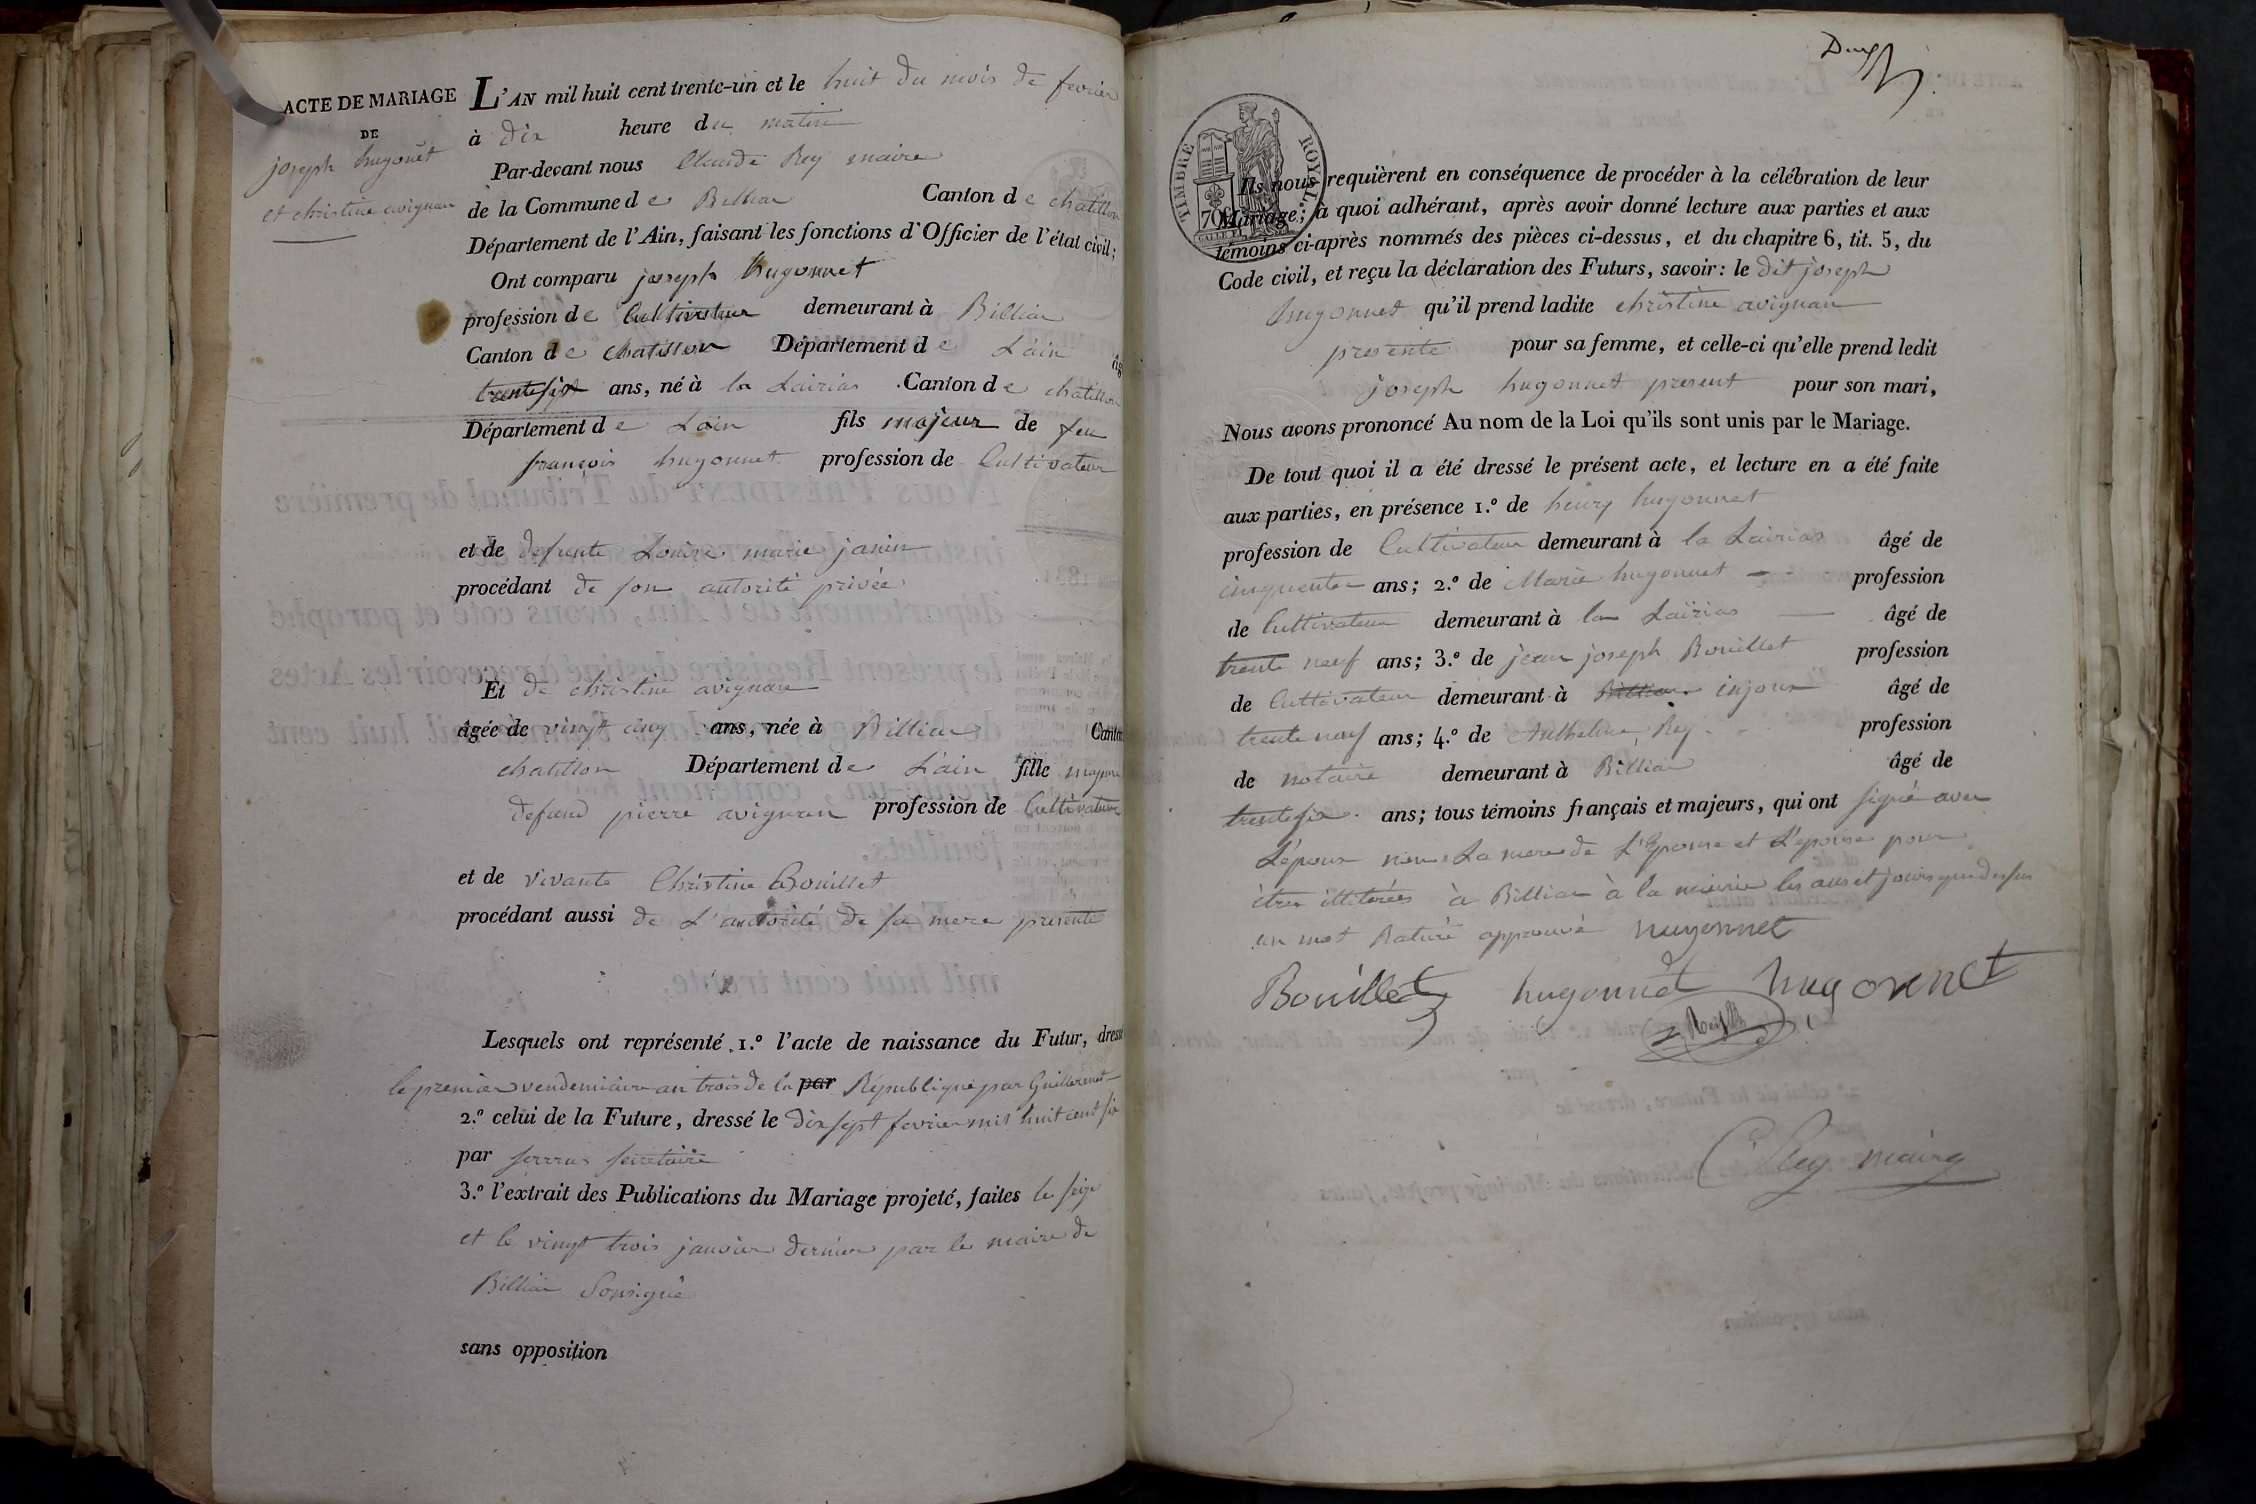 ACTE DE MARIAGE
DE
joseph hugonet
et christine avignan
L'AN mil huit cent trente-un et le huit du mois de fevrier
à dix heure du matin
Par-devant nous Claude Rey maire
de la Commune de Billiat Canton de chatillon
Département de l'Ain, faisant les fonctions d'Officier de l'état civil;
Ont comparu joseph hugonnet
profession de Cultivateur demeurant à Billiat
Canton de chatillon Département de L'ain âg
trente six ans, né à la Lairias Canton de chatillon
Département de Lain fils majeur de feu
françois hugonnet profession de Cultivateur
et de defunte Louise marie janin
procédant de son autorité privée
Et de christine avignan
âgée de vingt cinq ans, née à Billiat Canton
chatillon Département de L'ain fille majeure
defund pierre avignan profession de Cultivateur
et de vivante Christine Bouillet
procédant aussi de L'autorité de sa mere presente
Lesquels ont représenté 1.º l'acte de naissance du Futur, dressé
le premier vendemiaire an trois de la par République par Guillermet
2.º celui de la Future, dressé le dix sept fevrier mil huit cent six
par serrus secretaire
3.º l'extrait des Publications du Mariage projeté, faites le seize
et le vingt trois janvier dernier par le maire de
Billiat Sousigné
sans opposition
TIMBRE ROYAL
70
Ils nous requièrent en conséquence de procéder à la célébration de leur
Mariage; à quoi adhérant, après avoir donné lecture aux parties et aux
témoins ci-après nommés des pièces ci-dessus, et du chapitre 6, tit. 5, du
Code civil, et reçu la déclaration des Futurs, savoir: le dit joseph
hugonnet qu'il prend ladite christine avignan
presente pour sa femme, et celle-ci qu'elle prend ledit
joseph hugonnet present pour son mari,
Nous avons prononcé Au nom de la Loi qu'ils sont unis par le Mariage.
De tout quoi il a été dressé le présent acte, et lecture en a été faite
aux parties, en présence 1.º de henry hugonnet
profession de Cultivateur demeurant à la Lairias âgé de
cinquante ans; 2.º de Marie hugonnet profession
de Cultivateur demeurant à la Lairias âgé de
trente neuf ans; 3.º de jean joseph Bouillet profession
de Cultivateur demeurant à Billiat injoux âgé de
trente neuf ans; 4.º de Anthelme Rey profession
de notaire demeurant à Billiat âgé de
trente six ans; tous témoins français et majeurs, qui ont signé avec
L'époux non La mere de L'Epouse et L'épouse pour
être illitérées à Billiat à la mairie les an et jours que dessus
un mot Raturé approuvé hugonnet
Bouillet hugonnet hugonnet
Rey
C Rey maire